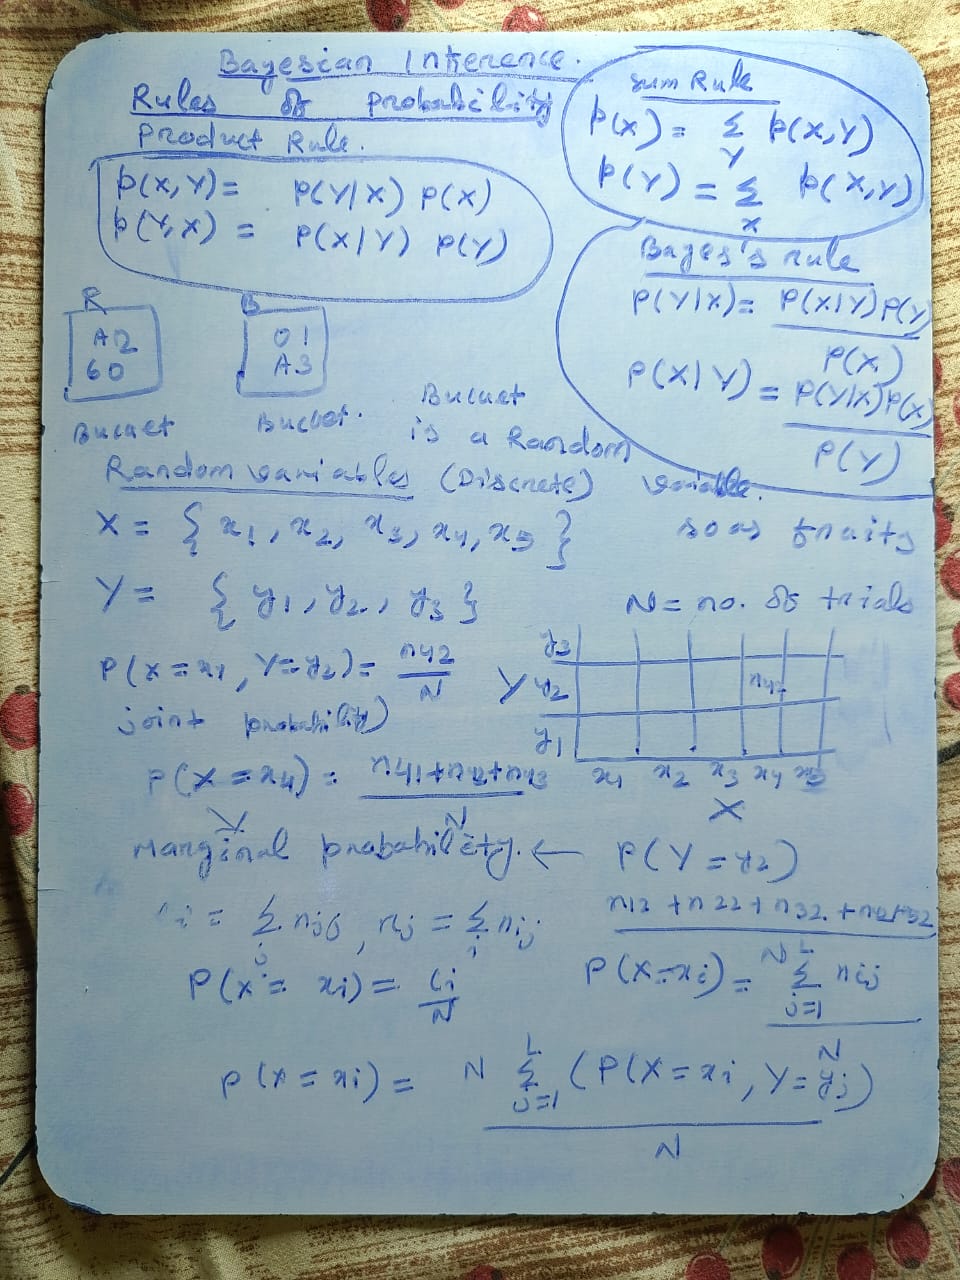 Bayesian Inference.
Rules of Probability
Product Rule.
p(X,Y) = P(Y|X) P(X)
p(Y,X) = P(X|Y) P(Y)
Sum Rule
p(X) = Σ_Y p(X,Y)
p(Y) = Σ_X p(X,Y)
Bayes's rule
P(Y|X) = P(X|Y)P(Y) / P(X)
P(X|Y) = P(Y|X)P(X) / P(Y)
R
A2
6O
Bucket
B
O1
A3
Bucket.
Bucket
is a Random
variable.
so as fruits
Random variables (Discrete)
X = { x1, x2, x3, x4, x5 }
Y = { y1, y2, y3 }
N = no. of trials
P(X = x1, Y = y2) = n42 / N
joint probability)
y3
Y y2 n42
y1
x1 x2 x3 x4 x5
X
P(X = x4) = n41+n42+n43 / N
Marginal probability. ← P(Y = y2)
n12 + n22 + n32 +
N
i = Σ_j nij, rj = Σ_i nij
P(X = xi) = ci / N
P(X = xi) = Σ_{j=1}^{L} nij
N
P(X = xi) = N Σ_{j=1}^{L} (P(X = xi, Y = yj)
N